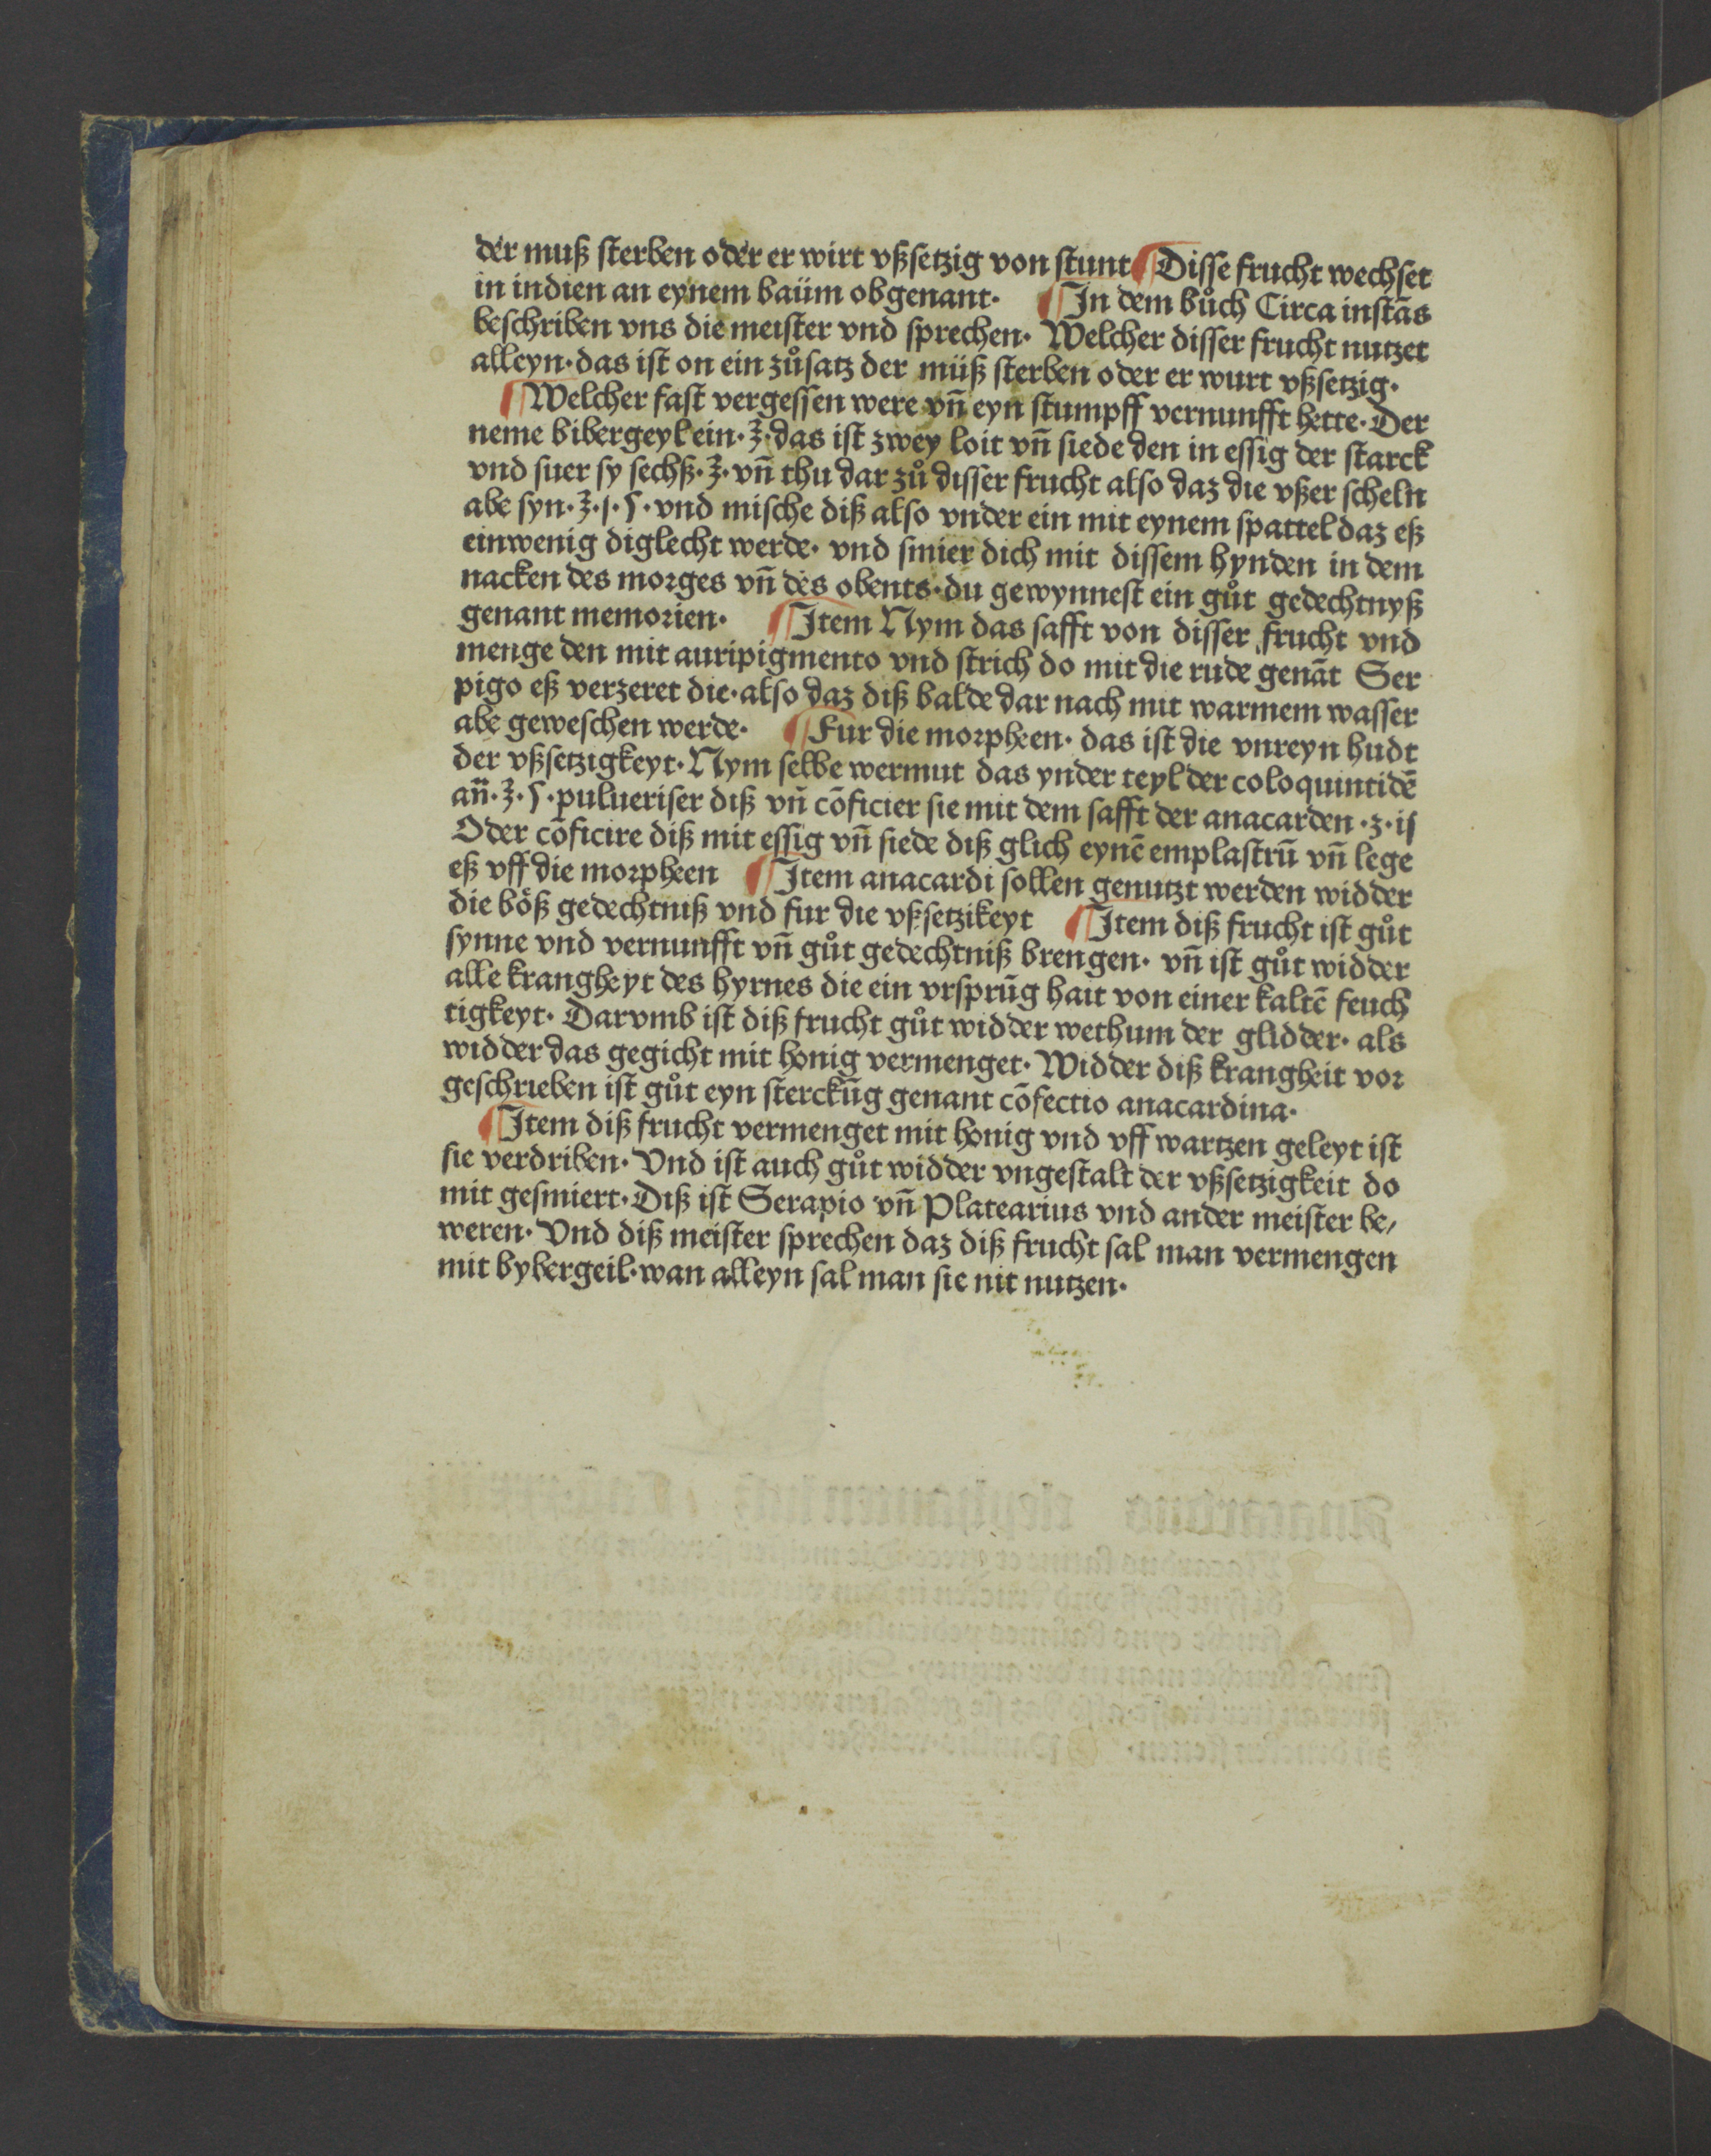 der muß sterben oder er wirt vßsetzig von stunt ¶ Disse frucht wechset
in indien an eynem baüm obgenant· ¶ In dem bůch Circa instās
beschriben vns die meister vnd sprechen· Welcher disser frucht nutzet
alleyn·das ist on ein zůsatz der müß sterben oder er wurt vßsetzig·
¶ Welcher fast vergessen were vn̄ eyn stumpff vernunfft hette·Der
neme bibergeyl ein·ʒ·das ist zwey loit vn̄ siede den in essig der starck
vnd suer sy sechß·ʒ·vn̄ thu dar zů disser frucht also daz die vßer scheln
abe syn·ʒ·j·ſ·vnd mische diß also vnder ein mit eynem spattel daz eß
einwenig diglecht werde· vnd smier dich mit dissem hynden in dem
nacken des morges vn̄ des obents·du gewynnest ein gůt gedechtnyß
genant memorien· ¶ Item Nym das safft von disser frucht vnd
menge den mit auripigmento vnd strich do mit die rude genāt Ser
pigo eß verzeret die·also daz diß balde dar nach mit warmem wasser
abe geweschen werde· ¶ Fur die morpheen· das ist die vnreyn hudt
der vßsetzigkeyt·Nym selbe wermut das ynder teyl der coloquintidē
an̄·ʒ·ſ·pulueriser diß vn̄ cōficier sie mit dem safft der anacarden·ʒ·ij
Oder cōficire diß mit essig vn̄ siede diß glich eynē emplastrū vn̄ lege
eß vff die morpheen ¶ Item anacardi sollen genutzt werden widder
die böß gedechtniß vnd fur die vßsetzikeyt ¶ Item diß frucht ist gůt
synne vnd vernunfft vn̄ gůt gedechtniß brengen· vn̄ ist gůt widder
alle krangheyt des hyrnes die ein vrsprūg hait von einer kaltē feuch
tigkeyt· Darvmb ist diß frucht gůt widder wethum der glidder· als
widder das gegicht mit honig vermenget· Widder diß krangheit vor
geschrieben ist gůt eyn sterckūg genant cōfectio anacardina·
¶ Item diß frucht vermenget mit honig vnd vff wartzen geleyt ist
sie verdriben· Vnd ist auch gůt widder vngestalt der vßsetzigkeit do
mit gesmiert·Diß ist Serapio vn̄ Platearius vnd ander meister be/
weren· Vnd diß meister sprechen daz diß frucht sal man vermengen
mit bybergeil·wan alleyn sal man sie nit nutzen·